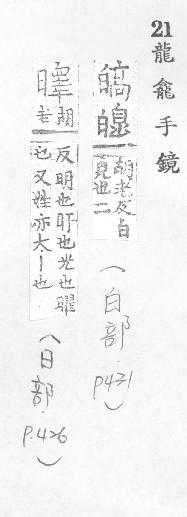 21 龍龕手鏡
皜皞 胡老反白
皃也二
(白部.
P431)
暭 胡
老 反明也旰也光也曜
也又姓亦太丨也
(日部.
P.426)